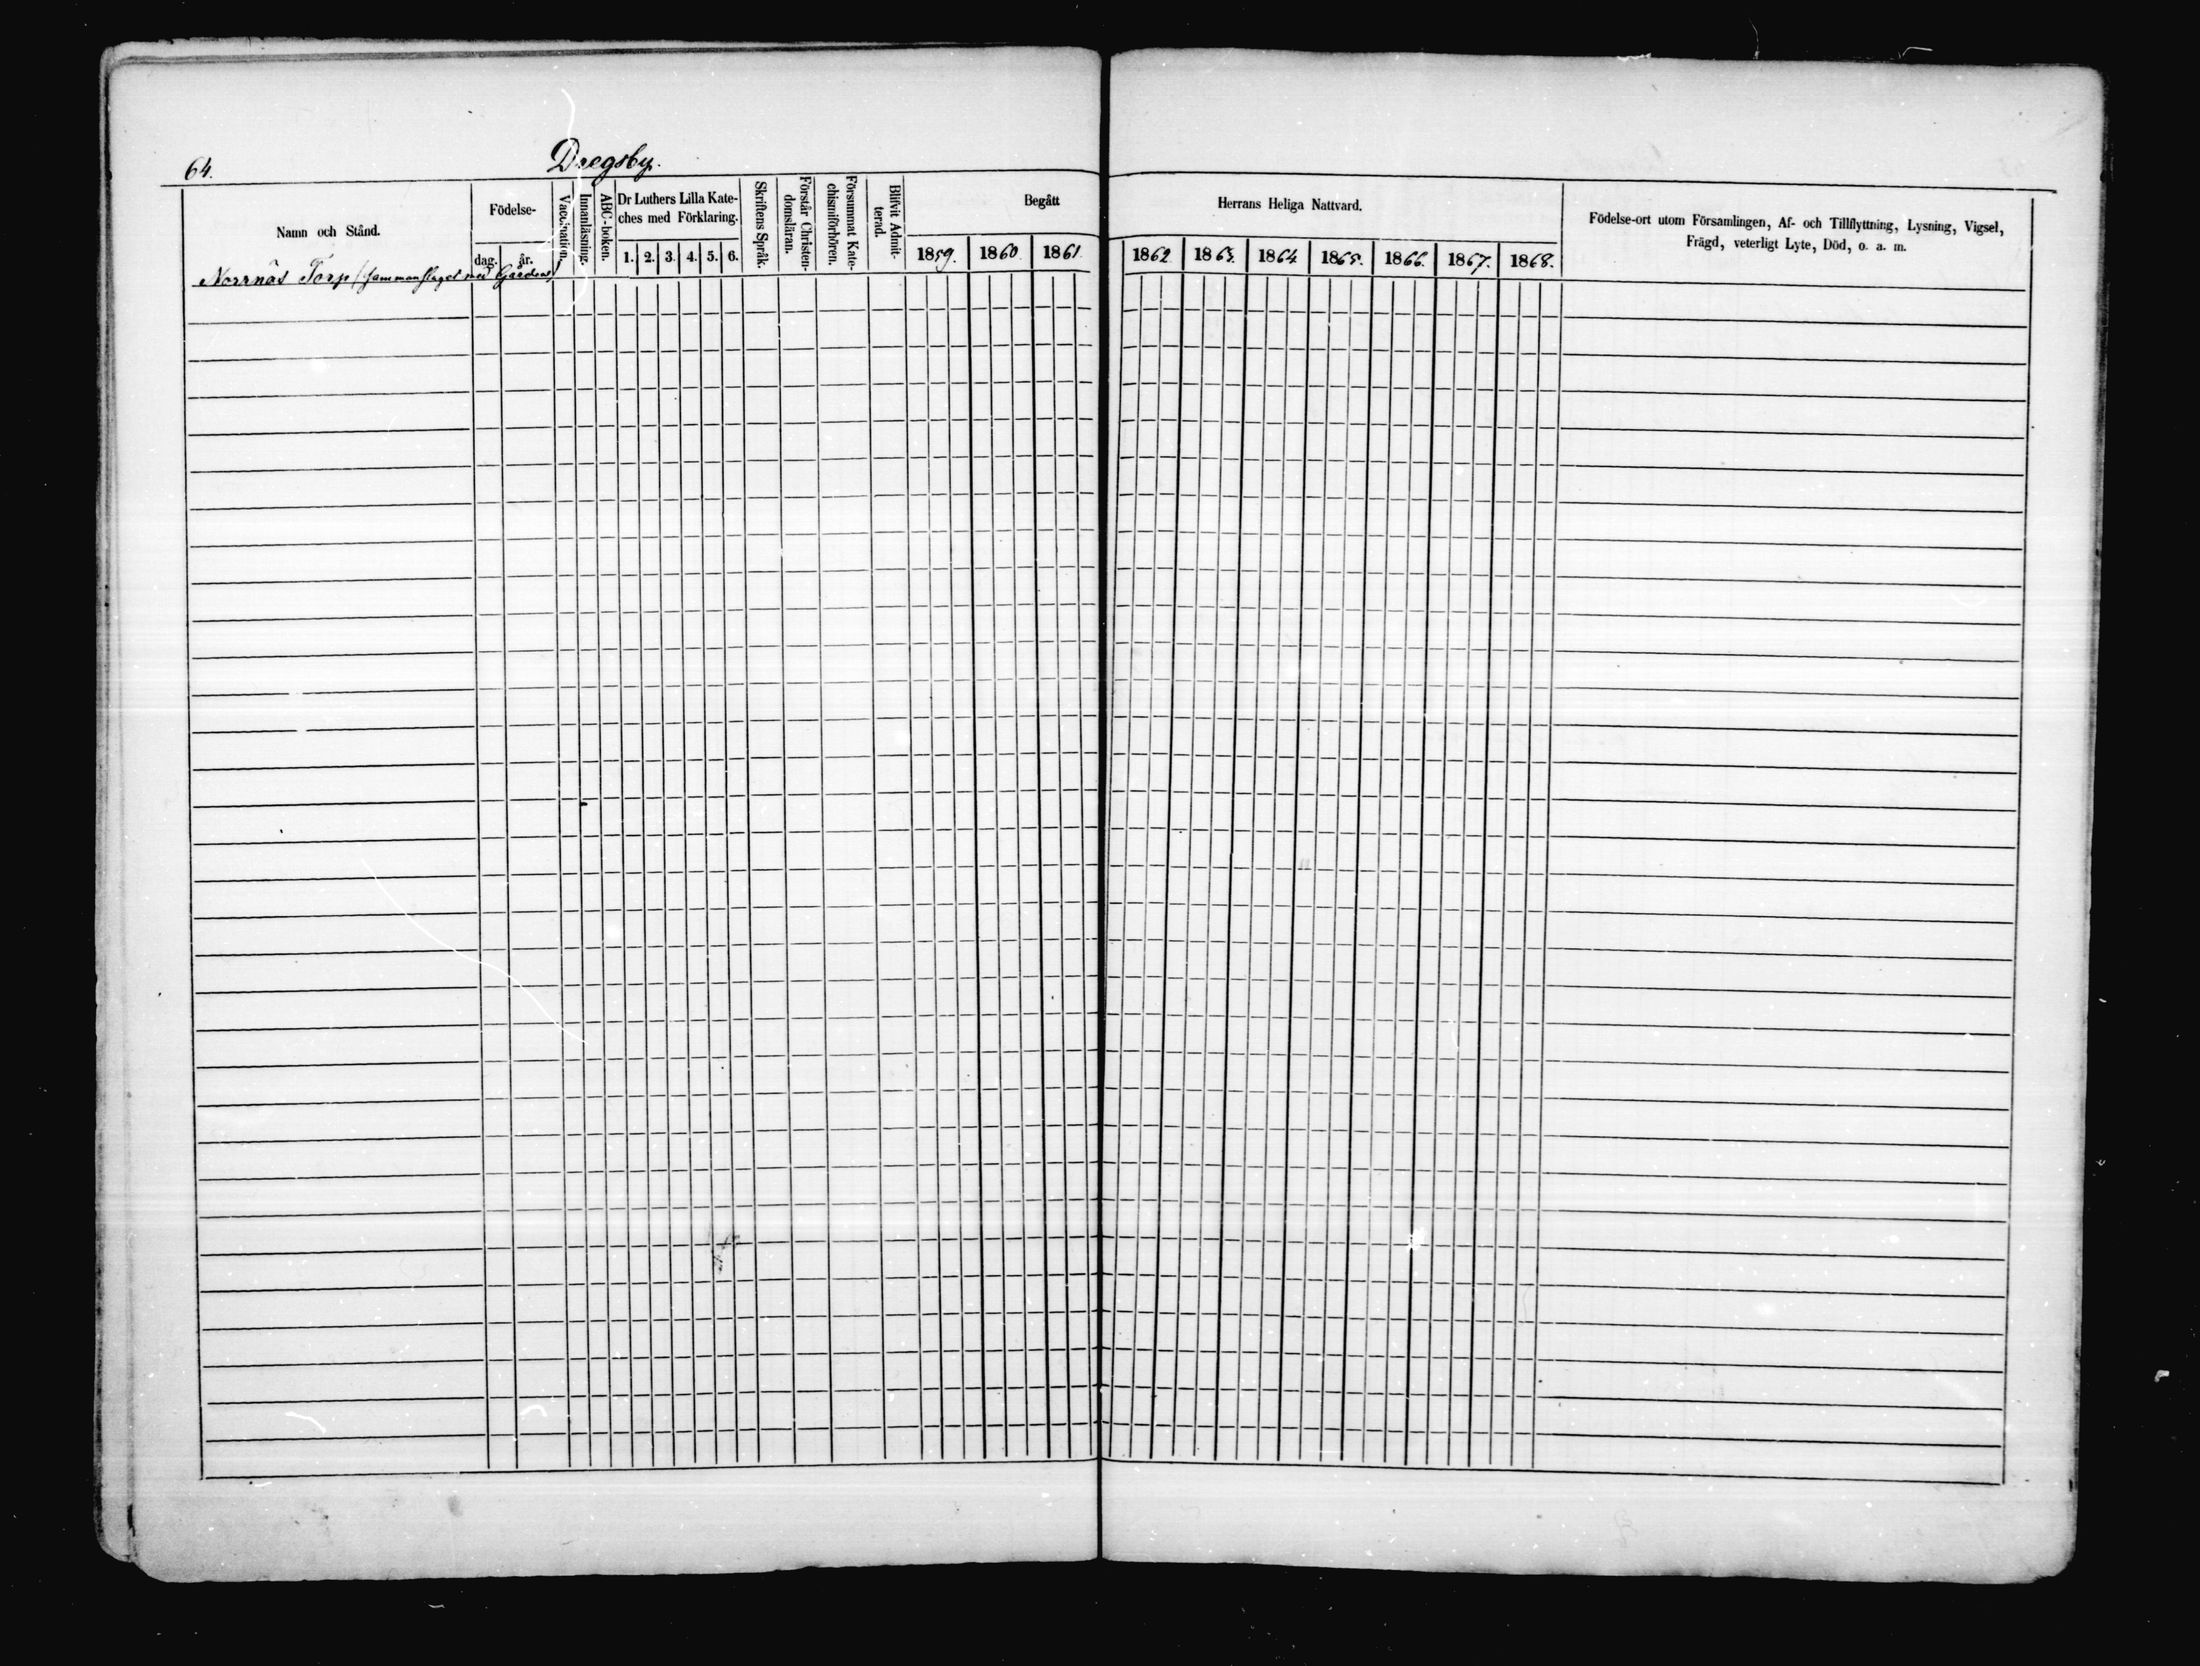 64.
Dregsby.
Namn och Stånd.
Födelse-
dag.
år.
Vaccination.
Innanläsning.
ABC-boken.
Dr Luthers Lilla Kate-
ches med Förklaring.
1. 2. 3. 4. 5. 6.
Skriftens Språk.
Förstår Christen-
domsläran.
Försummat Kate-
chismiförhören.
Blifvit Admit-
terad.
Begått
1859. 1860. 1861
Herrans Heliga Nattvard.
1862. 1863. 1864. 1865. 1866. 1867. 1868.
Födelse-ort utom Församlingen, Af- och Tillflyttning, Lysning, Vigsel,
Frägd, veterligt Lyte, Död, o. a. m.
Norrnäs Torp (sammanslaget med Gården)